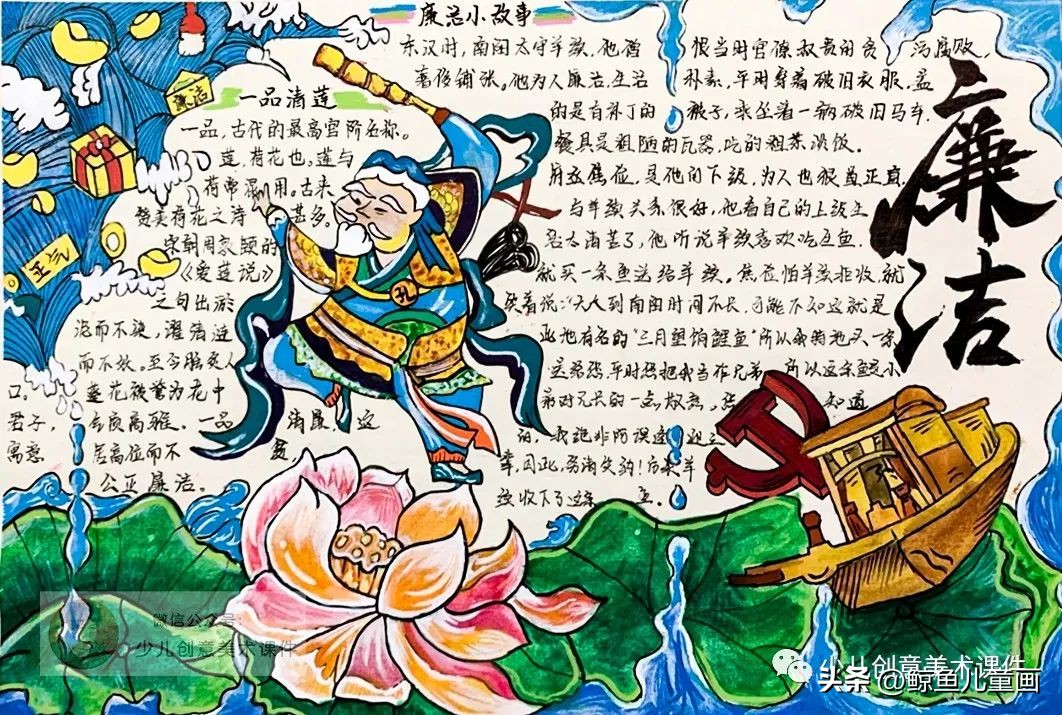 廉洁小故事
东汉时,南阳太守羊续,他憎
恨当时官僚权贵的贪污腐败,
奢侈铺张。他为人廉洁,生活
朴素,平时穿着破旧衣服,盖
的是有补丁的被子,乘坐着一辆破旧马车.
餐具是粗陋的瓦器,吃的粗茶淡饭。
府丞焦俭,是他的下级,为人也很正直.
与羊续关系很好,他看自己的上级生
活太清苦了,他听说羊续喜欢吃鱼,
就买一条鱼送给羊续。焦俭怕羊续拒收,就
笑着说:"大人到南阳时间不长,可能不知这就是
此地有名的"三月望饷鲤鱼"所以我特地买一条
送给您,平时您把我当作兄弟 所以这条鱼是小
弟对兄长的一点敬意。
知道
一品清莲
一品,古代的最高官阶名称。
莲,荷花也,莲与
荷常混用。古来
赞美荷花之诗甚多。
宋朝周敦颐的
《爱莲说》
之句出淤
泥而不染,濯清涟
而不妖。至今脍炙人
口。莲花被誉为花中
君子,品质高雅。一品清廉,这
寓意 居高位而不
公正廉洁。
廉洁
廉洁
正气
孔
微信公众号:
少儿创意美术课件
少儿创意美术课件
头条@鲸鱼儿童画